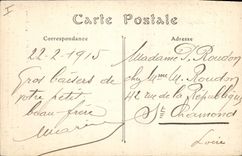 Carte Postale
Correspondance
Adresse
22-2-1915
Gros baisers de
votre petit
beau-frère
Madame P. Roudon
chez Mme M. Roudon
42 rue de la République
St Chamond
Loire